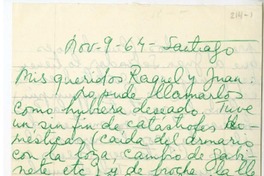 214-1
Nov-9-64-Santiago
Mis queridos Raquel y Juan:
No pude llamarlos
como hubiera deseado. Tuve
un sin fin de catástrofes do-
mésticas (caida del armario
con la loza, cambio de Gabi-
nete, etc) y de noche